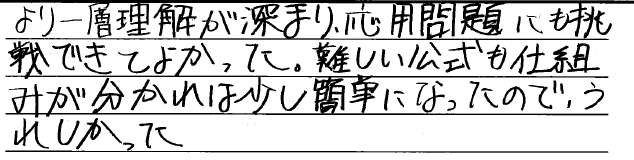 より一層理解が深まり、応用問題にも挑
戦できてよかった。難しい公式も仕組
みが分かれば少し簡単になったので、う
れしかった